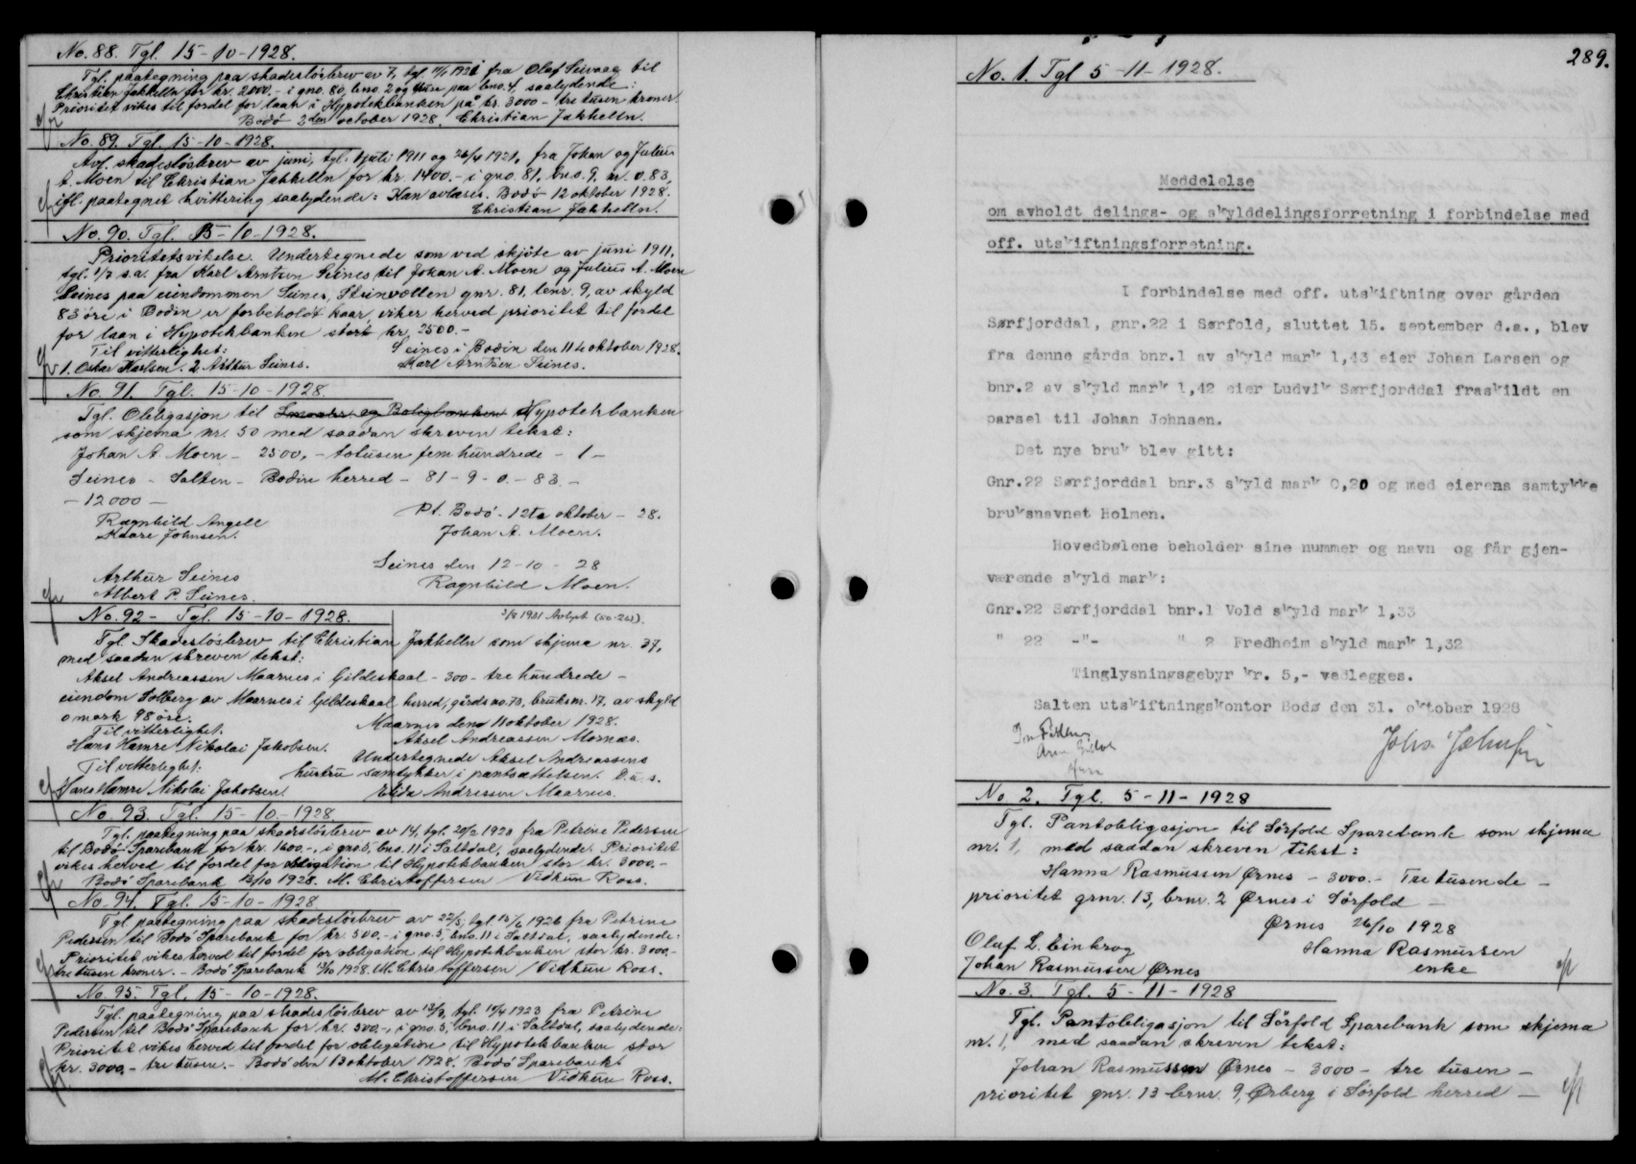 No. 88. Tgl. 15-10-1928.
Tgl. paategning paa skadesløsbrev av 7, tgl. 11/1 1921 fra Olaf Seivaag til
Christian Jakhelln for kr. 2000.- i gno. 80, bno. 2 og Husa paa bno. 4, saalydende:
Prioritet vikes til fordel for laan i Hypotekbanken på kr. 3000 - tre tusen kroner.
Bodø 2den october 1928. Christian Jakhelln.
No. 89. Tgl. 15-10-1928.
Avl. skadesløsbrev av juni, tgl. 1 juli 1911 og 26/4 1921, fra Johan og Julius
A. Moen til Christian Jakhelln for kr. 1400.- i gno. 81, bno. 9, m. 0.83,
ifl. paategnet kvittering saalydende: Kan avlæses. Bodø 12 oktober 1928.
Christian Jakhelln.
No. 90. Tgl. 15-10-1928.
Prioritetsvikelse. Undertegnede som ved skjøte av juni 1911,
tgl. 1/7 s.a. fra Karl Arntsen Seines til Johan A. Moen og Julius A. Moen
Seines paa eiendommen Seines, Steinvollen gnr. 81, bnr. 9, av skyld
83 øre i Bodin er forbeholdt kaar, viker herved prioritet til fordel
for laan i Hypotekbanken stort kr. 2500.-
Til vitterlighet: Seines i Bodin den 11te oktober 1928.
1. Oskar Karlsen. 2. Arthur Seines. Karl Arntsen Seines.
No. 91. Tgl. 15-10-1928.
Tgl. Obligasjon til Smaabr. og Boligbanken Hypotekbanken
som skjema nr. 50 med saadan skreven tekst:
Johan A. Moen - 2500,- totusen fem hundrede - 1 -
Seines - Salten - Bodin herred - 81 - 9 - 0.- 83. -
- 12000 -
Ragnhild Angell Pt. Bodø - 12te oktober - 28.
Kaare Johnsen. Johan A. Moen.
Seines den 12-10-28
Arthur Seines Ragnhild Moen.
Albert P. Seines.
No. 92 - Tgl. 15-10-1928.
Tgl. Skadesløsbrev til Christian Jakhelln som skjema nr. 37,
med saadan skreven tekst:
Aksel Andreassen Maarnes i Gildeskaal - 300 - tre hundrede -
eiendom Solberg av Maarnes i Gildeskaal herred, gårds no. 73, bruksnr. 17, av skyld
0 mark 98 øre. Maarnes den 11 oktober 1928.
Til vitterlighet. Aksel Andreassen Mornæs.
Hans Hamre Nikolai Jakobsen. Undertegnede Aksel Andreassens
Til vitterlighet: hustru samtykker i pantsættelsen. D.u.s.
Hans Hamre Nikolai Jakobsen. Elida Andressen Maarnes.
No. 93. Tgl. 15-10-1928
Tgl. paategning paa skadesløsbrev av 14, tgl. 20/2 1920 fra Petrine Pedersen
til Bodø Sparebank for kr. 1600.-, i gno. 5, bno. 11 i Saltdal, saalydende: Prioritet
vikes herved til fordel for obligation til Hypotekbanken stor kr. 3000.-
Bodø Sparebank 13/10 1928. M. Christoffersen / Vidkun Ross.
No. 94. Tgl. 15-10-1928
Tgl. paategning paa skadesløsbrev av 22/5, tgl. 15/6 1926 fra Petrine
Pedersen til Bodø Sparebank for kr. 500,- i gno. 5, bno. 11 i Saltdal, saalydende:
Prioritet vikes herved til fordel for obligation til Hypotekbanken stor kr. 3000,-
tre tusen kroner. - Bodø Sparebank 13/10 1928. M. Christoffersen / Vidkun Ross.
No. 95. Tgl. 15-10-1928.
Tgl. paategning paa skadesløsbrev av 13/3, tgl. 10/4 1923 fra Petrine
Pedersen til Bodø Sparebank for kr. 500,-, i gno. 5, bno. 11 i Saltdal, saalydende:
Prioritet vikes herved til fordel for obligation til Hypotekbanken stor
kr. 3000.- tre tusen.- Bodø den 13 oktober 1928. Bodø Sparebank
M. Christoffersen Vidkun Ross.
289.
No. 1. Tgl 5-11-1928.
Meddelelse
om avholdt delings- og skylddelingsforretning i forbindelse med
off. utskiftningsforretning.
I forbindelse med off. utskiftning over gården
Sørfjorddal, gnr.22 i Sørfold, sluttet 15. september d.a., blev
fra denne gårds bnr.1 av skyld mark 1,43 eier Johan Larsen og
bnr.2 av skyld mark 1,42 eier Ludvik Sørfjorddal fraskildt en
parsel til Johan Johnsen.
Det nye bruk blev gitt:
Gnr.22 Sørfjorddal bnr.3 skyld mark 0,20 og med eierens samtykke
bruksnavnet Holmen.
Hovedbølene beholder sine nummer og navn og får gjen-
værende skyld mark:
Gnr.22 Sørfjorddal bnr.1 Vold skyld mark 1,33
" 22 -"- " 2 Fredheim skyld mark 1,32
Tinglysningsgebyr kr. 5,- vedlegges.
Salten utskiftningskontor Bodø den 31. oktober 1928
No 2. Tgl. 5-11-1928
Tgl. Pantobligasjon til Sörfold Sparebank som skjema
nr. 1, med saadan skreven tekst:
Hanna Rasmussen Ørnes - 3000.- Tre tusende -
prioritet grnr. 13, brnr. 2 Ørnes i Sörfold -
Ørnes 26/10 1928
Oluf L. Einkrog Hanna Rasmussen
Johan Rasmussen Ørnes enke
No. 3. Tgl. 5-11-1928
Tgl. Pantobligasjon til Sörfold Sparebank som skjema
nr. 1, med saadan skreven tekst:
Johan Rasmussen Ørnes - 3000 - tre tusen -
prioritet gnr. 13 brnr. 9, Ørberg i Sörfold herred -